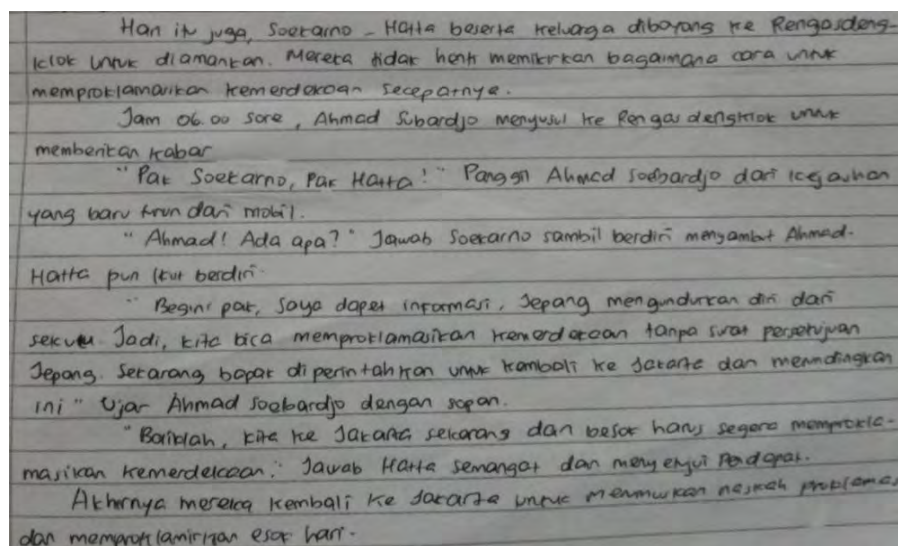 Hari itu juga, Soekarno - Hatta beserta keluarga diboyong ke Rengasdeng-
klok untuk diamankan. Mereka tidak henti memikirkan bagaimana cara untuk
memproklamasikan kemerdekaan secepatnya.
Jam 06.00 sore, Ahmad Subardjo menyusul ke Rengasdengklok untuk
memberikan kabar
"Pak Soekarno, Pak Hatta!" Panggil Ahmad Soebardjo dari kejauhan
yang baru turun dari mobil.
"Ahmad! Ada apa?" Jawab Soekarno sambil berdiri menyambut Ahmad.
Hatta pun ikut berdiri.
"Begini pak, saya dapet informasi, Jepang mengundurkan diri dari
sekutu. Jadi, kita bisa memproklamasikan kemerdekaan tanpa surat persetujuan
Jepang. Sekarang bapak diperintahkan untuk kembali ke Jakarta dan merundingkan
ini" Ujar Ahmad Soebardjo dengan sopan.
"Baiklah, kita ke Jakarta sekarang dan besok harus segera memprokla-
masikan kemerdekaan." Jawab Hatta semangat dan menyetujui Pendapat.
Akhirnya mereka kembali ke Jakarta untuk naskah
dan memproklamirkan esok hari.